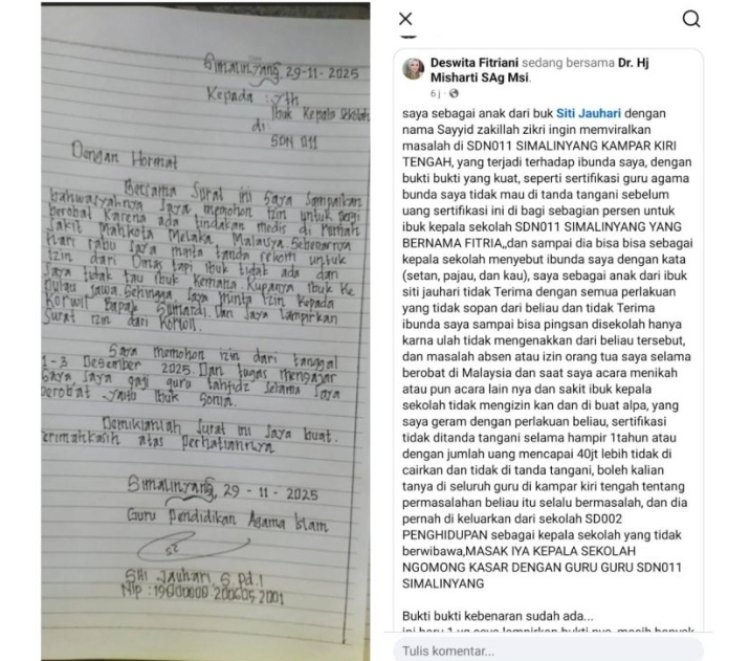 Simalinyang, 29-11-2025
Kepada : Yth
Ibuk Kepala Sekolah
di
SDN 011
Dengan Hormat
Bersama Surat ini Saya Sampaikan
bahwasyahnya Saya memohon izin untuk pergi
berobat Karena ada tindakan medis di Rumah
Sakit Mahkota Melaka Malaysa. Sebenarnya
Hari rabu Saya minta tanda rekom untuk
izin dari Dinas tapi ibuk tidak ada dan
Saya tidak tau ibuk Kemana. Rupanya ibuk Ke
Pulau Jawa. Sehingga Saya minta Izin Kepada
Korwil Bapak Sumardi. Dan Saya lampirkan
Surat izin dari Korwil.
Saya memohon izin dari tanggal
1-3 Desember 2025. Dan tugas mengajar
Saya, Saya gaji guru tahfidz Selama Saya
berobat yaitu Ibuk Sonia.
Demikianlah Surat ini Saya buat.
terimahkasih atas perhatiannya
Simalinyang, 29-11-2025
Guru Pendidikan Agama Islam
Siti Jauhari, S.Pd.I
Nip :
Deswita Fitriani sedang bersama Dr. Hj
Misharti SAg Msi.
6 j
saya sebagai anak dari buk Siti Jauhari dengan
nama Sayyid zakillah zikri ingin memviralkan
masalah di SDN011 SIMALINYANG KAMPAR KIRI
TENGAH, yang terjadi terhadap ibunda saya, dengan
bukti bukti yang kuat, seperti sertifikasi guru agama
bunda saya tidak mau di tanda tangani sebelum
uang sertifikasi ini di bagi sebagian persen untuk
ibuk kepala sekolah SDN011 SIMALINYANG YANG
BERNAMA FITRIA,,dan sampai dia bisa bisa sebagai
kepala sekolah menyebut ibunda saya dengan kata
(setan, pajau, dan kau), saya sebagai anak dari ibuk
siti jauhari tidak Terima dengan semua perlakuan
yang tidak sopan dari beliau dan tidak Terima
ibunda saya sampai bisa pingsan disekolah hanya
karna ulah tidak mengenakkan dari beliau tersebut,
dan masalah absen atau izin orang tua saya selama
berobat di Malaysia dan saat saya acara menikah
atau pun acara lain nya dan sakit ibuk kepala
sekolah tidak mengizin kan dan di buat alpa, yang
saya geram dengan perlakuan beliau, sertifikasi
tidak ditanda tangani selama hampir 1tahun atau
dengan jumlah uang mencapai 40jt lebih tidak di
cairkan dan tidak di tanda tangani, boleh kalian
tanya di seluruh guru di kampar kiri tengah tentang
permasalahan beliau itu selalu bermasalah, dan dia
pernah di keluarkan dari sekolah SD002
PENGHIDUPAN sebagai kepala sekolah yang tidak
berwibawa,MASAK IYA KEPALA SEKOLAH
NGOMONG KASAR DENGAN GURU GURU SDN011
SIMALINYANG
Bukti bukti kebenaran sudah ada...
Tulis komentar...